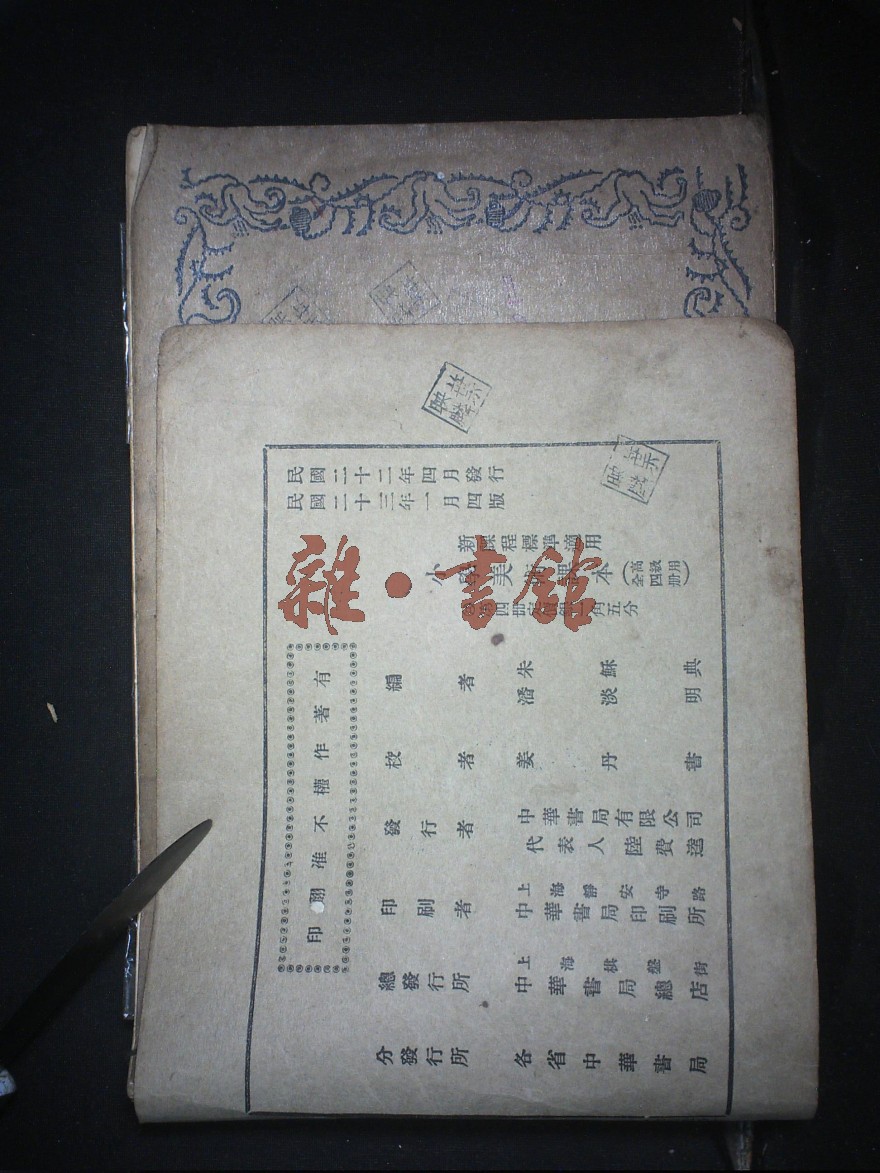 民國二十二年四月發行
民國二十三年一月四版
新課程標準適用
小學美術課本
(高級用
全四冊)
四冊定價銀 角五分
有著作權不准翻印
編者
朱穌典
潘淡明
校者
姜丹書
發行者
中華書局有限公司
代表人陸費逵
印刷者
上海靜安寺路
中華書局印刷所
總發行所
上海棋盤街
中華書局總店
分發行所
各省中華書局
雜·書館